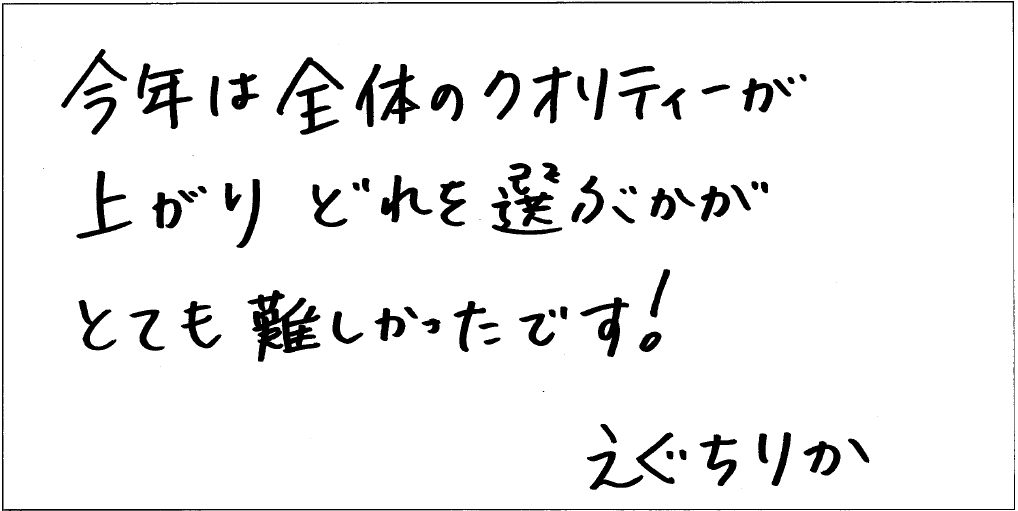 今年は全体のクオリティーが
上がり どれを選ぶかが
とても難しかったです!
えぐちりか